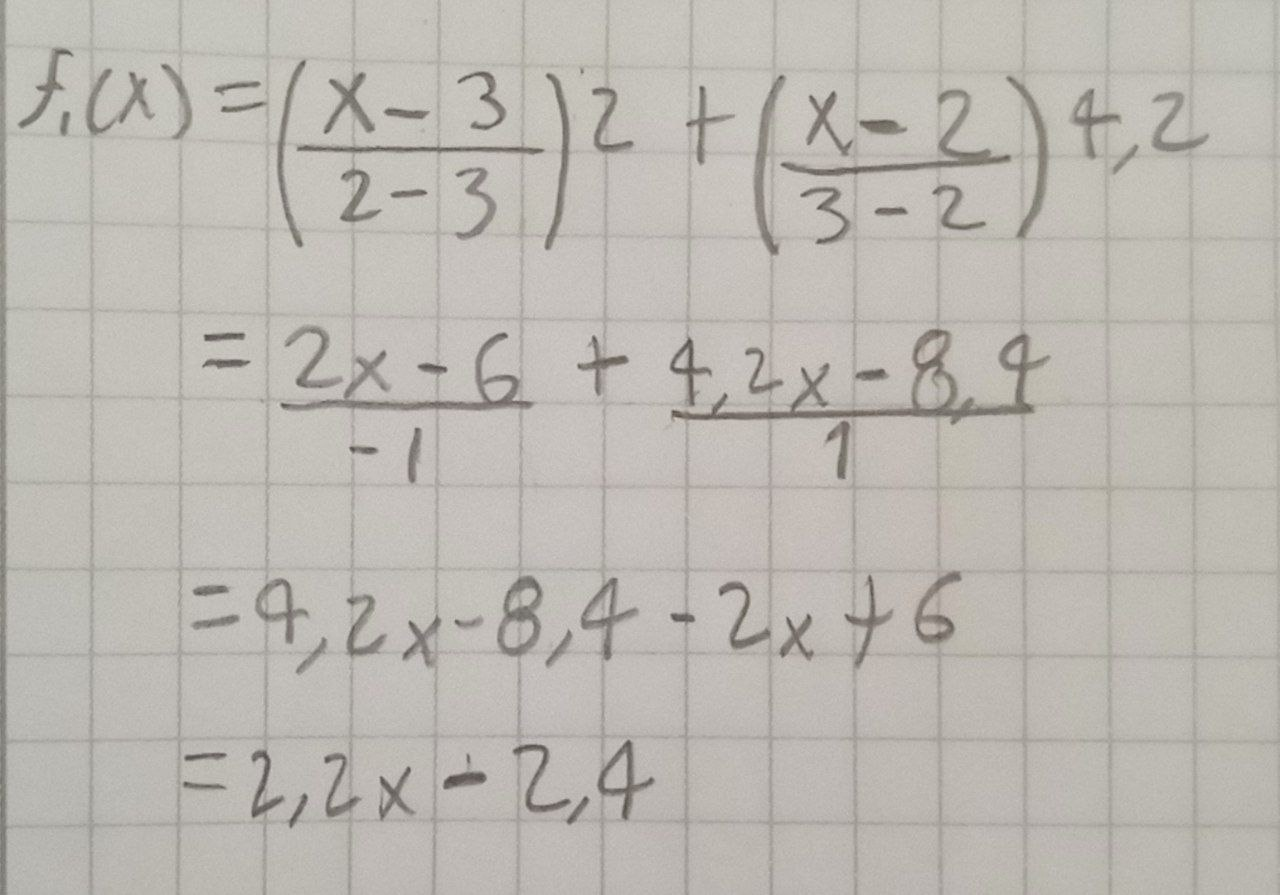 f₁(x) = ((x - 3)/(2 - 3)) 2 + ((x - 2)/(3 - 2)) 4,2
= (2x - 6)/(-1) + (4,2x - 8,4)/1
= 4,2x - 8,4 - 2x + 6
= 2,2x - 2,4